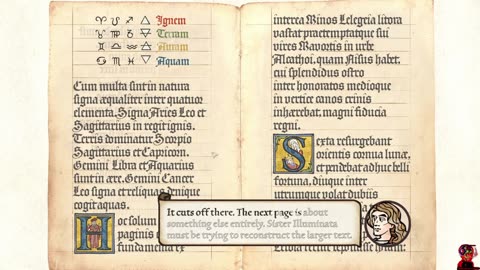 ♈ ♌ ♐ 🜂 Ignem
♉ ♍ ♑ 🜃 Terram
♊ ♎ ♒ 🜁 Auram
♋ ♏ ♓ 🜄 Aquam
Cum multa sint in natura
signa æqualiter inter quatuor
elementa. Signa Aries Leo et
Sagittarius in regit ignis.
Terris dominatur Scorpio
Sagittarius et Capricorn.
Gemini Libra et Aquarius
sunt in aere. Gemini Cancer
Leo signa et reliquias denique
cogitaquas.
oc solum
paginis
fundamenta
interea Minos Lelegeia litora
vastat praetemptatque sui
vires Mavortis in urbe
Alcathoi, quam Nisus habet,
cui splendidus ostro
inter honoratos medioque
in vertice canos crinis
inhærebat, magni fiducia
regni.
Sexta resurgebant
orientis cornua lunæ,
et pendebat adhuc belli
fortuna, diuque inter
utrumque volat dubiis
It cuts off there. The next page is about
something else entirely. Sister Illuminata
must be trying to reconstruct the larger text.